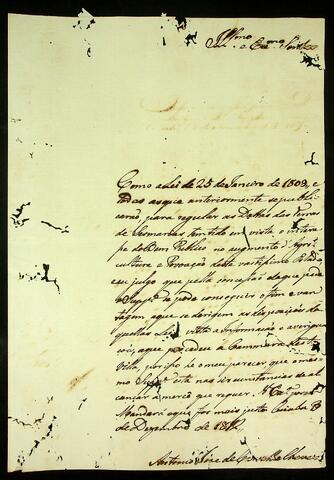 Illmo
Snr. e Exmo Senhor
Como a Lei de 25 de Janeiro de 1809, e
as que anteriormente se publi
carão, para regular as Datas das terras
de Sesmarias tenhão em vista o intere
pe do Bem Publico no augmento d'Agri
cultura e Povoação deste vastissimo
eu julgo que pella concepão da que pede
o Supp.e se pode conseguir o fim e van
tagem a que se dirigem as dispozições da
quellas Leis vista a informação e averigua
a que procedeu a Cammara desta
Villa, por ipo he o meu parecer, que o mes
mo Supp.e está nas circunstancias de al
cançar a mercê que requer. V. Ex.a porem
Mandará o que for mais justo Cuiabá
de Dezembro de 1812.
Antonio Joze de